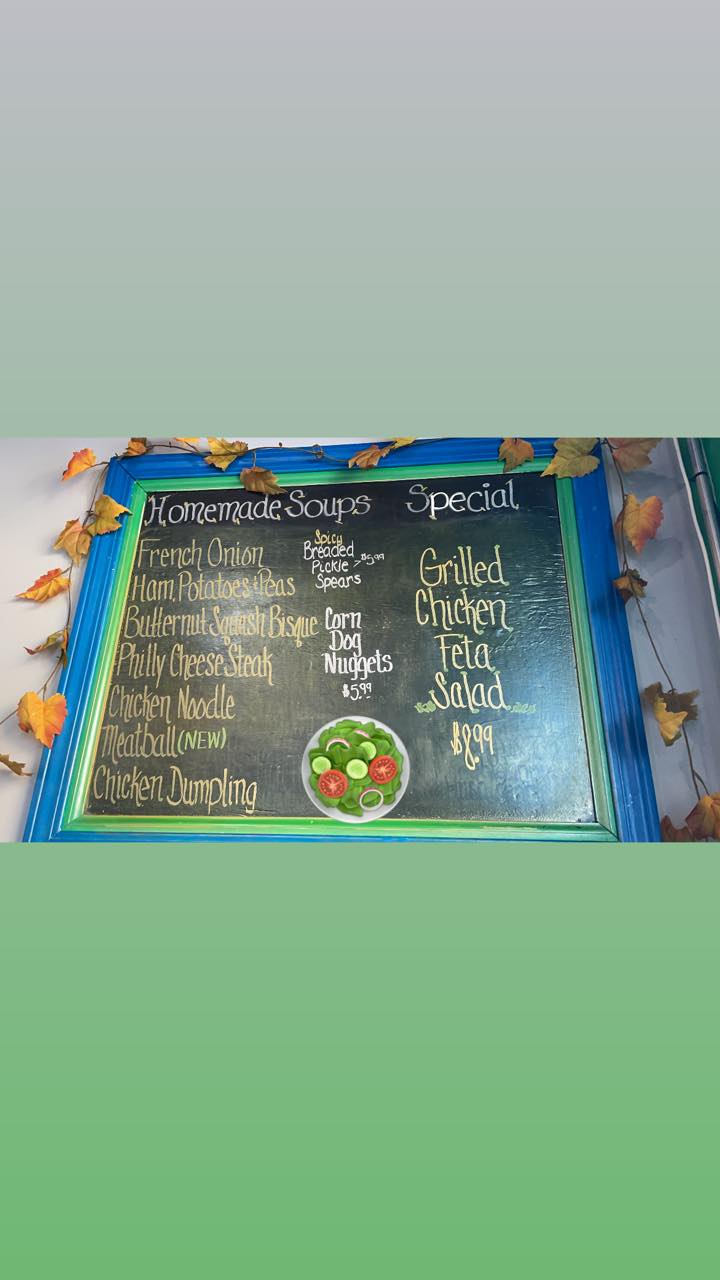 Homemade Soups
French Onion
Ham, Potatoes & Peas
Butternut Squash Bisque
Philly Cheese Steak
Chicken Noodle
Meatball (NEW)
Chicken Dumpling
Spicy
Breaded
Pickle
Spears
$5.99
Corn
Dog
Nuggets
$5.99
Special
Grilled
Chicken
Feta
Salad
$8.99